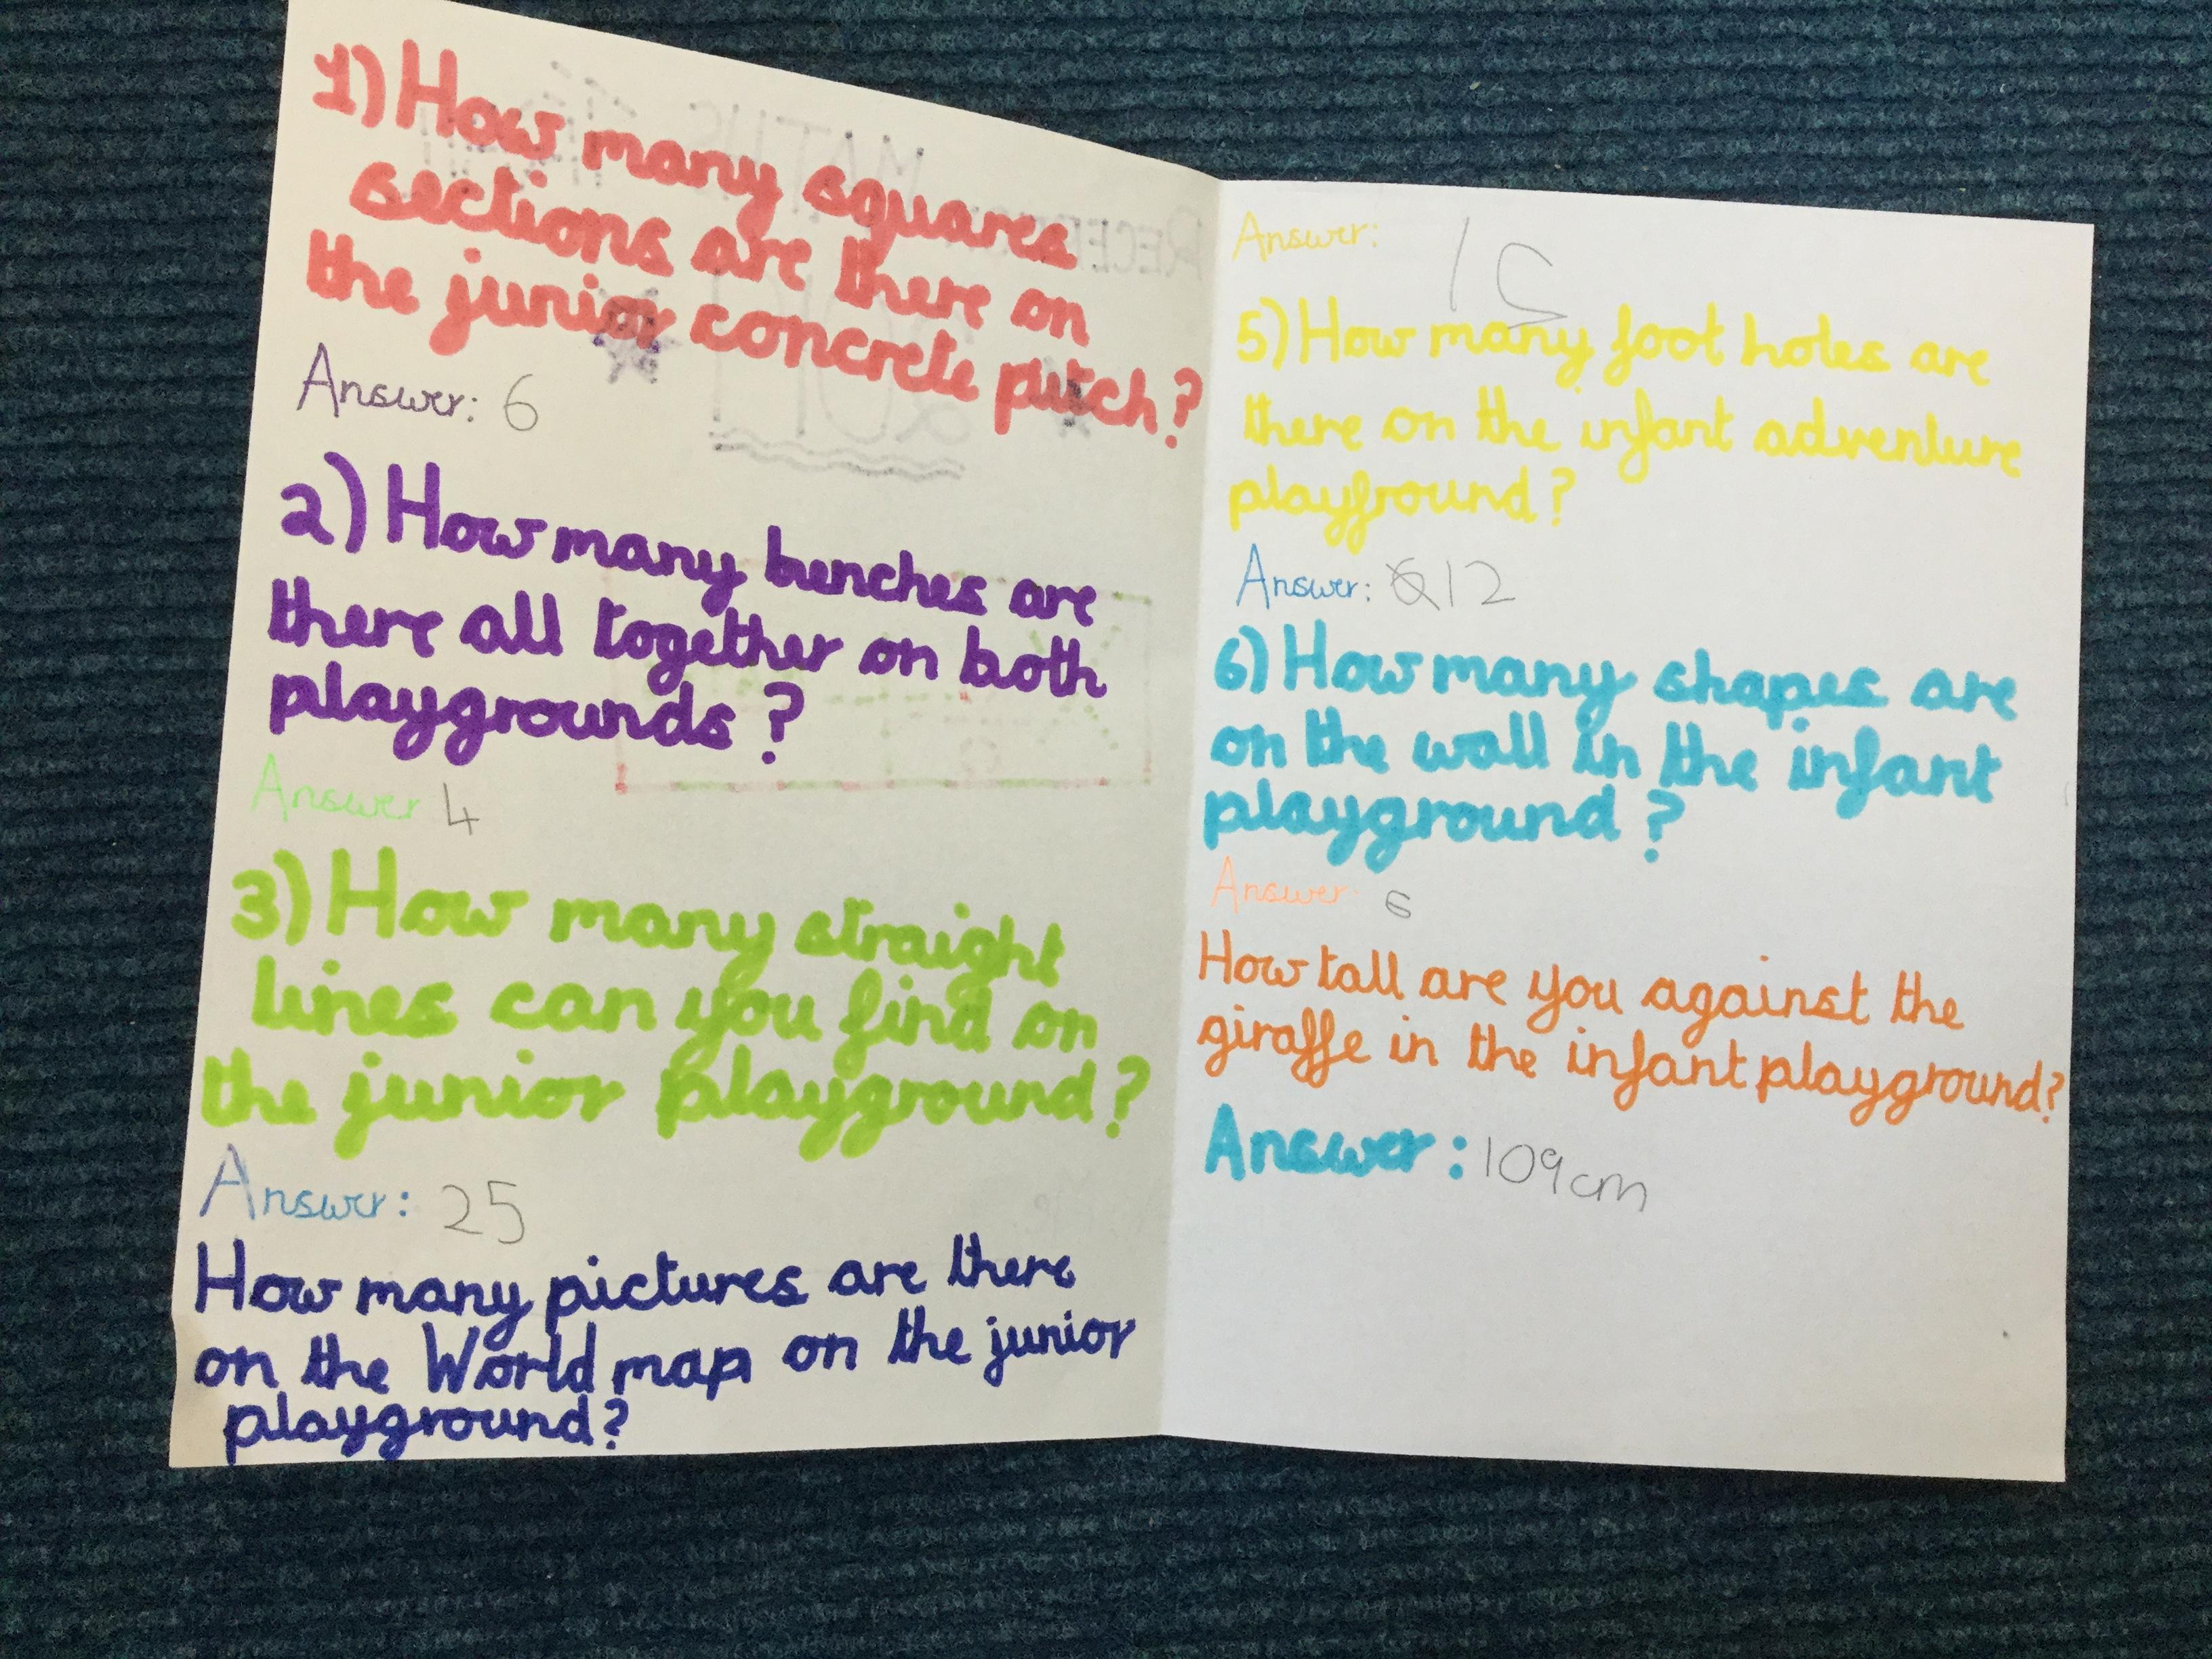 1) How many squares
sections are there on
the junior concrete pitch?
Answer: 6
2) How many benches are
there all together on both
playgrounds?
Answer 4
3) How many straight
lines can you find on
the junior playground?
Answer: 25
How many pictures are there
on the World map on the junior
playground?
Answer:
5) How many foot holes are
there on the infant adventure
playground?
Answer: 12
6) How many shapes are
on the wall in the infant
playground?
Answer: 6
How tall are you against the
giraffe in the infant playground?
Answer: 109cm